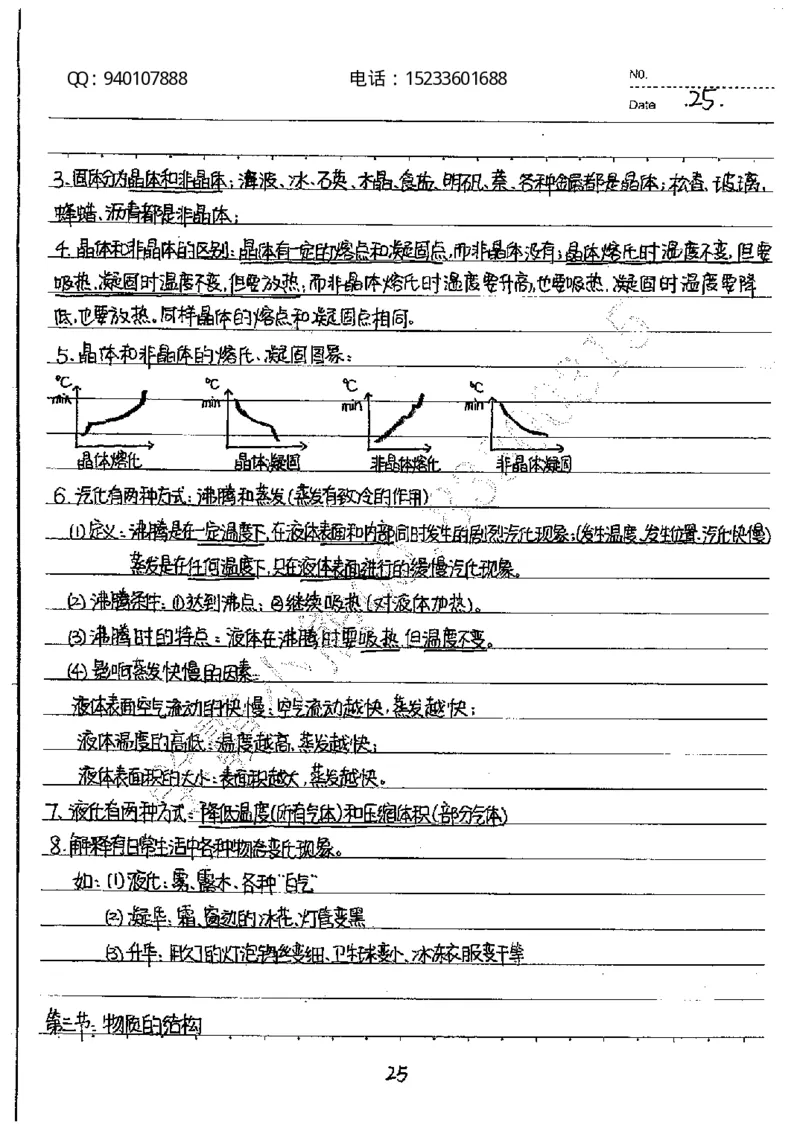 QQ：940107888 电话：15233601688 NO.
Date .25.
3、固体分为晶体和非晶体；海波、冰、石英、水晶、食盐、明矾、萘、各种金属都是晶体；松香、玻璃，
蜂蜡、沥青都是非晶体；
4、晶体和非晶体的区别：晶体有一定的熔点和凝固点，而非晶体没有；晶体熔化时温度不变，但要
吸热，凝固时温度不变，但要放热；而非晶体熔化时温度要升高，也要吸热，凝固时温度要降
低，也要放热。同样晶体的熔点和凝固点相同。
5、晶体和非晶体的熔化、凝固图象：
℃ ℃ ℃ ℃
min min min min
晶体熔化 晶体凝固 非晶体熔化 非晶体凝固
6、汽化有两种方式：沸腾和蒸发（蒸发有致冷的作用）
(1)定义：沸腾是在一定温度下，在液体表面和内部同时发生的剧烈汽化现象；（发生温度、发生位置、汽化快慢）
蒸发是在任何温度下，只在液体表面进行的缓慢汽化现象。
(2)沸腾条件：①达到沸点；②继续吸热（对液体加热）。
(3)沸腾时的特点：液体在沸腾时要吸热，但温度不变。
(4)影响蒸发快慢的因素：
液体表面空气流动的快慢：空气流动越快，蒸发越快；
液体温度的高低：温度越高，蒸发越快；
液体表面积的大小：表面积越大，蒸发越快。
7、液化有两种方式：降低温度（所有气体）和压缩体积（部分气体）
8、解释有日常生活中各种物态变化现象。
如：(1)液化：雾、露水、各种“白气”
(2)凝华：霜、窗边的冰花、灯管变黑
(3)升华：用久了的灯泡钨丝变细、卫生球变小、冰冻衣服变干等
第三节：物质的结构
25